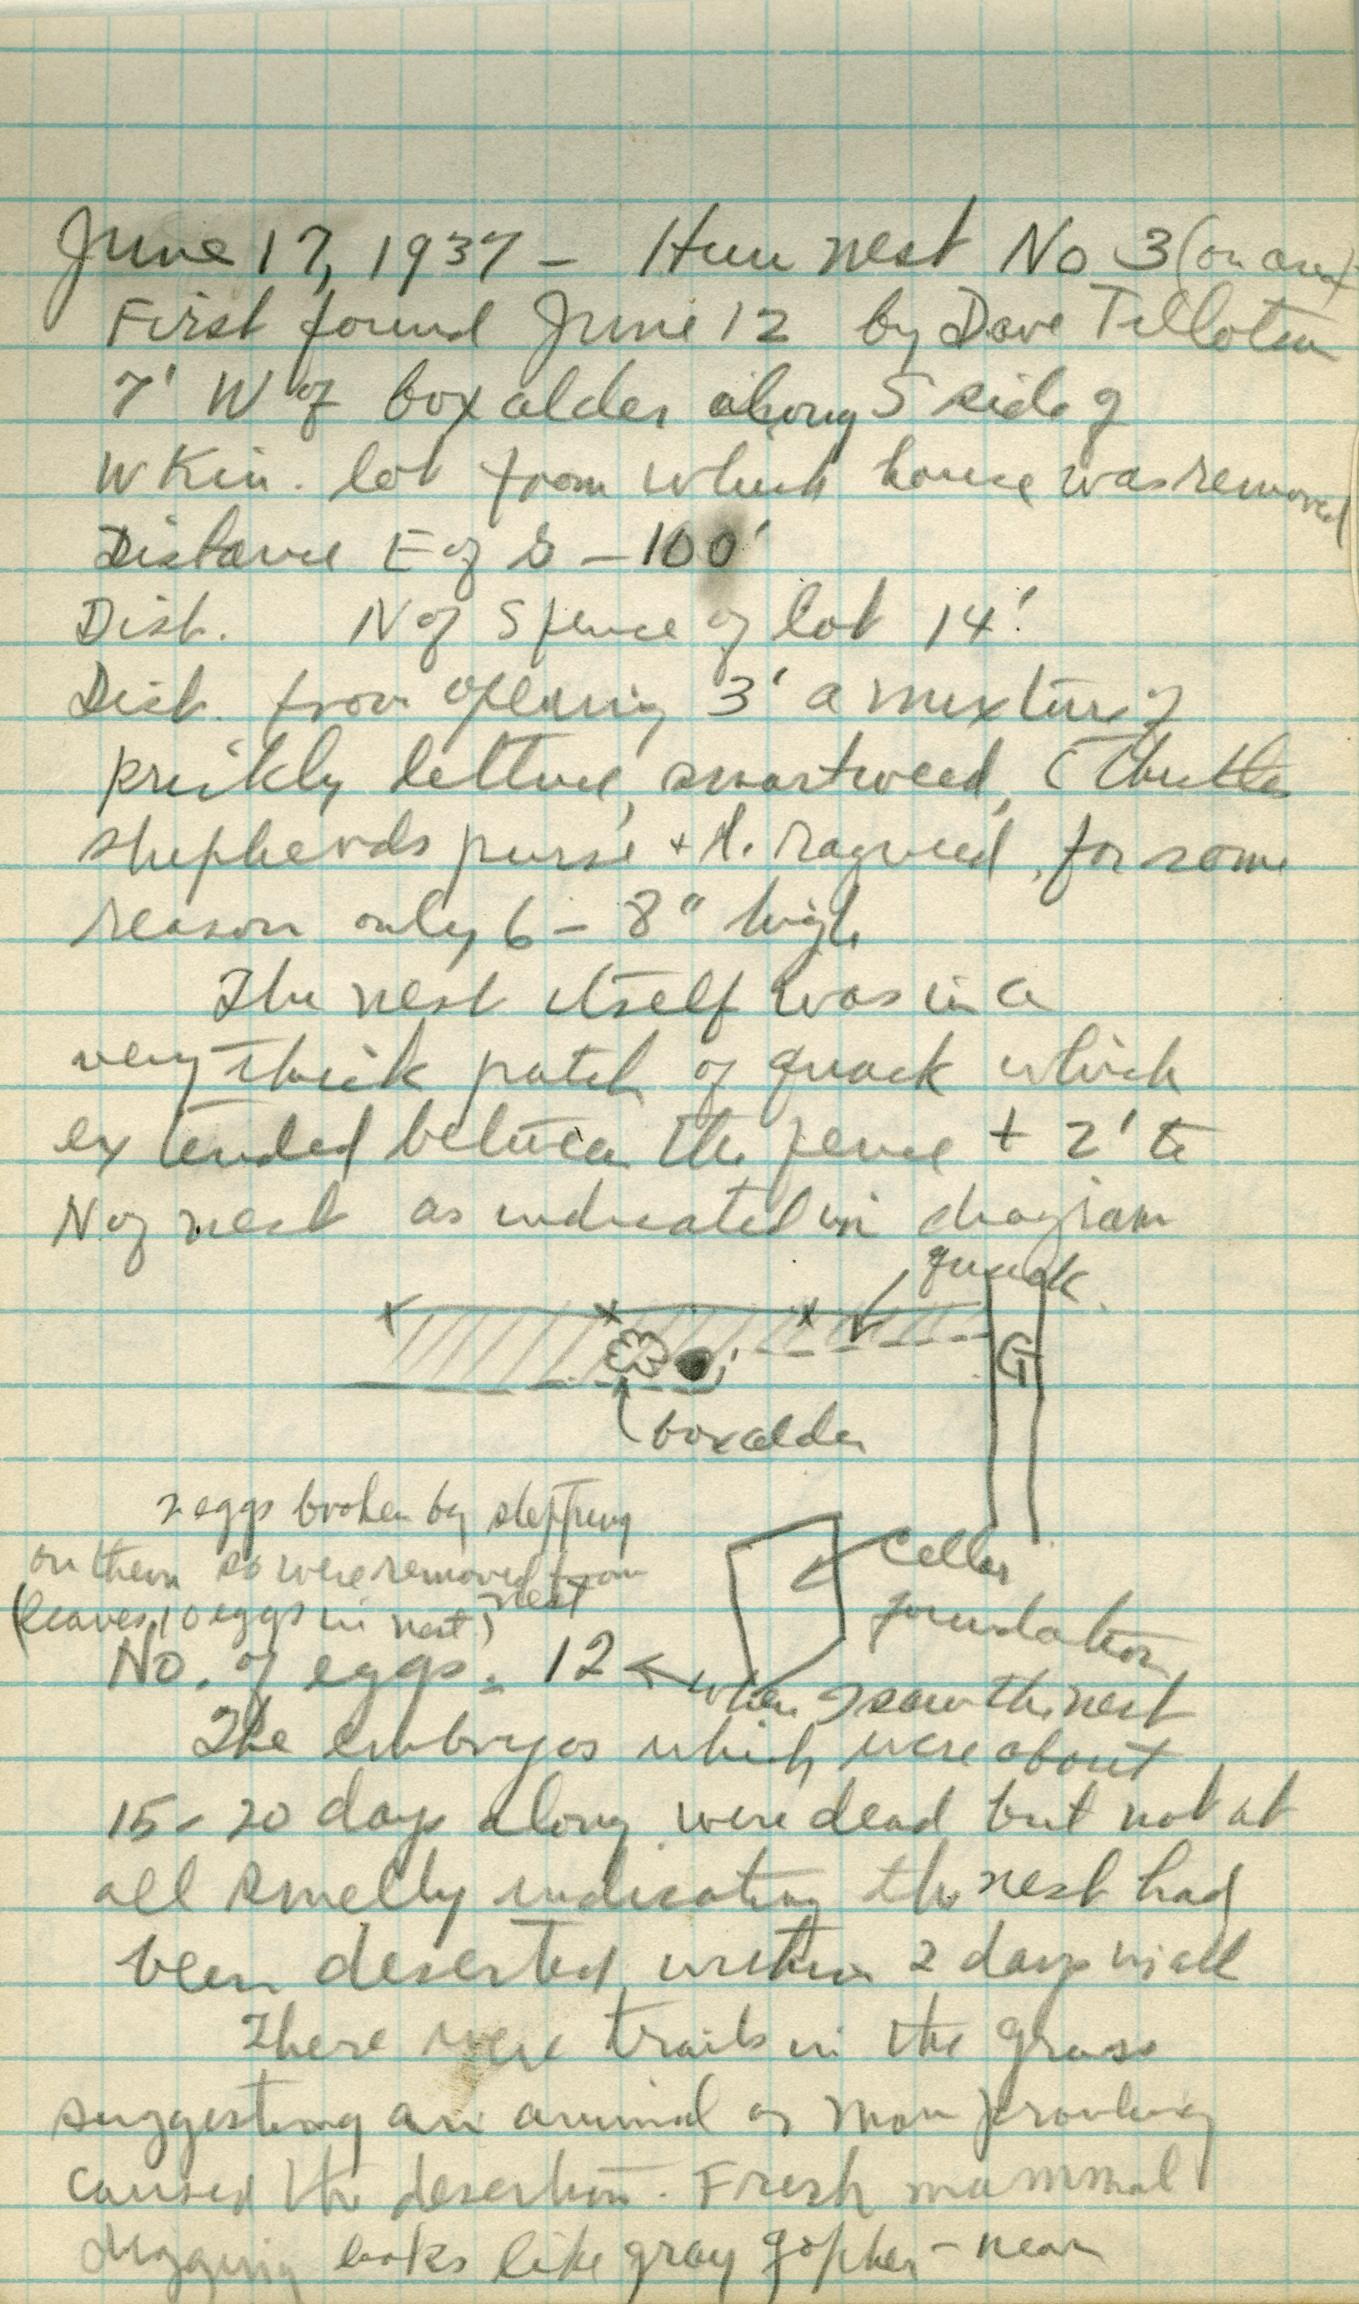 June 17, 1937 – Hun nest No 3 (on area)
First found June 12 by Dave Tillotson
7' W of boxalder along S side of
W Kin. lot from which house was removed
Distance E of G – 100'
Dist. N of S fence of lot 14'
Dist. from opening 3' a mixture of
prickly lettuce, smartweed, C thistle
shepherds purse + R. ragweed, for some
reason only 6 – 8" high
The nest itself was in a
very thick patch of quack which
extended between the fence + 2' to
N of nest as indicated in diagram
quack
G
boxalder
2 eggs broken by stepping
on them so were removed from
nest
(leaves 10 eggs in nest)
cellar
foundation
No. of eggs = 12 ← when I saw the nest
The embryos which were about
15 - 20 days along were dead but not at
all smelly indicating the nest had
been deserted within 2 days in all
There were trails in the grass
suggesting an animal or man prowling
caused the desertion. Fresh mammal
digging looks like gray gopher – near